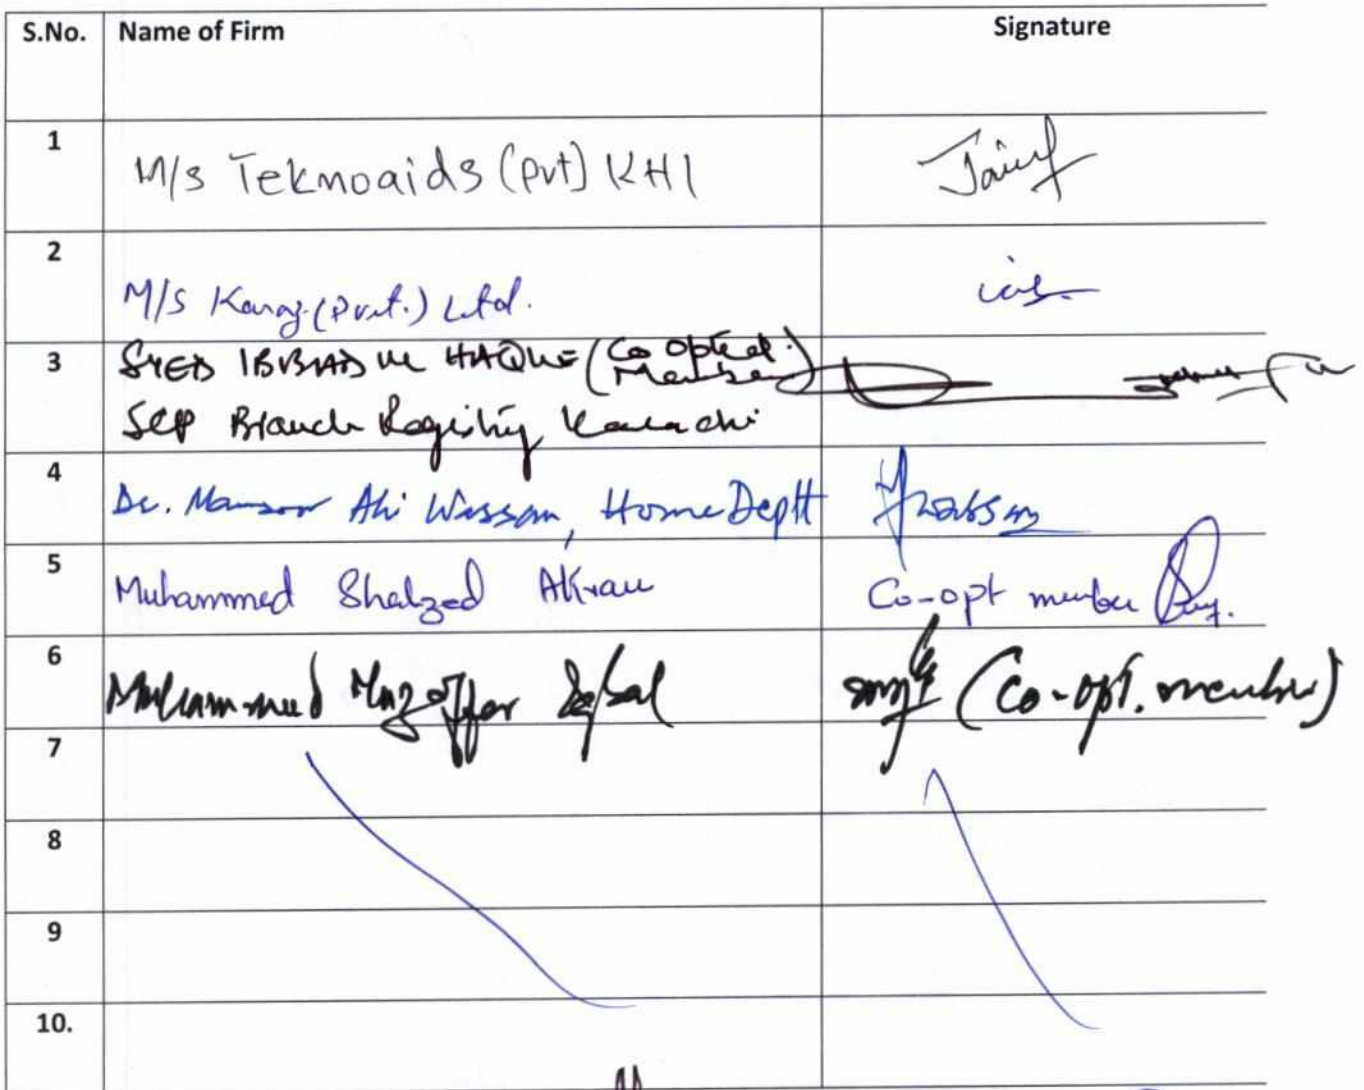 S.No. Name of Firm Signature
1 M/s Teknoaids (Pvt) KHI
2 M/S Karaz (Pvt.) Ltd.
3 SYED IBBAD UL HAQUE (Co opted Member)
SCP Branch Registry Karachi
4 Dr. Mansoor Ali Wassan, Home Deptt Wassan
5 Muhammed Shahzad Akram Co-opt member
6 Muhammed Muzaffar Iqbal (Co-opt. member)
7
8
9
10.